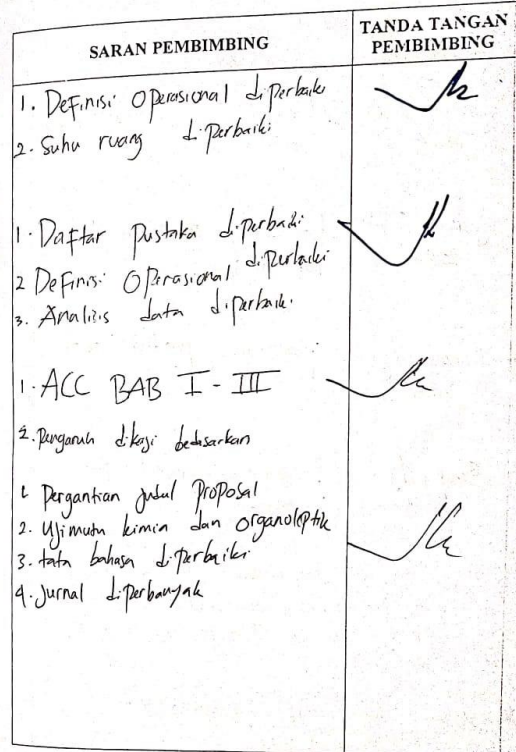 SARAN PEMBIMBING
TANDA TANGAN
PEMBIMBING
1. Definisi Operasional diperbaiki
2. Suhu ruang diperbaiki
1. Daftar Pustaka diperbaiki
2 Definisi Operasional diperbaiki
3. Analisis data diperbaiki
1. ACC BAB I - III
2. Pengaruh dikaji bedasarkan
1. Pergantian judul Proposal
2. Uji mutu kimia dan organoleptik
3. tata bahasa diperbaiki
4. Jurnal diperbanyak